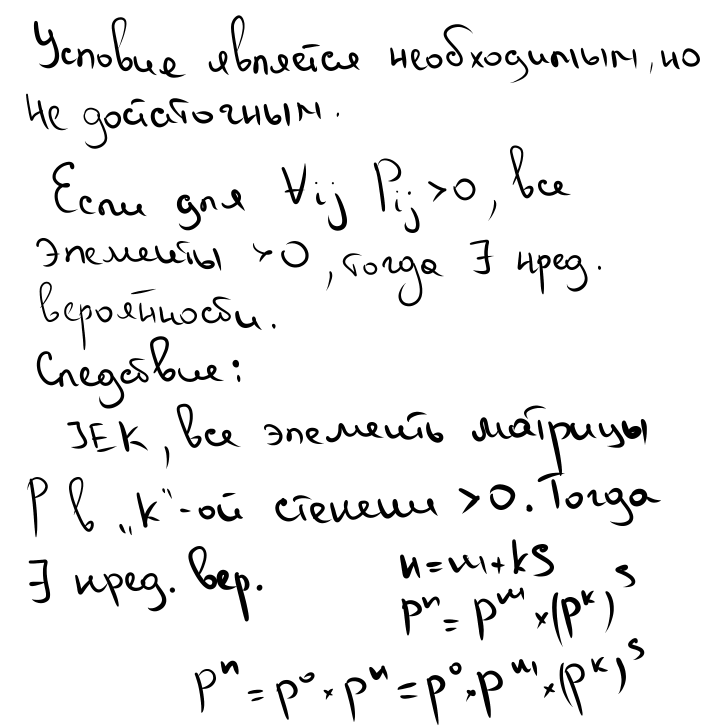 Условие является необходимым, но
не достаточным.
Если для ∀ij Pij>0, все
элементы >0, тогда ∃ пред.
вероятности.
Следствие:
∃EK, все элементь матрицы
P в „k"-ой степени >0. Тогда
∃ пред. вер.
n=m+kS
pⁿ = pᵐ × (pᵏ)ˢ
pⁿ = p⁰ × pⁿ = p⁰ × pᵐ × (pᵏ)ˢ